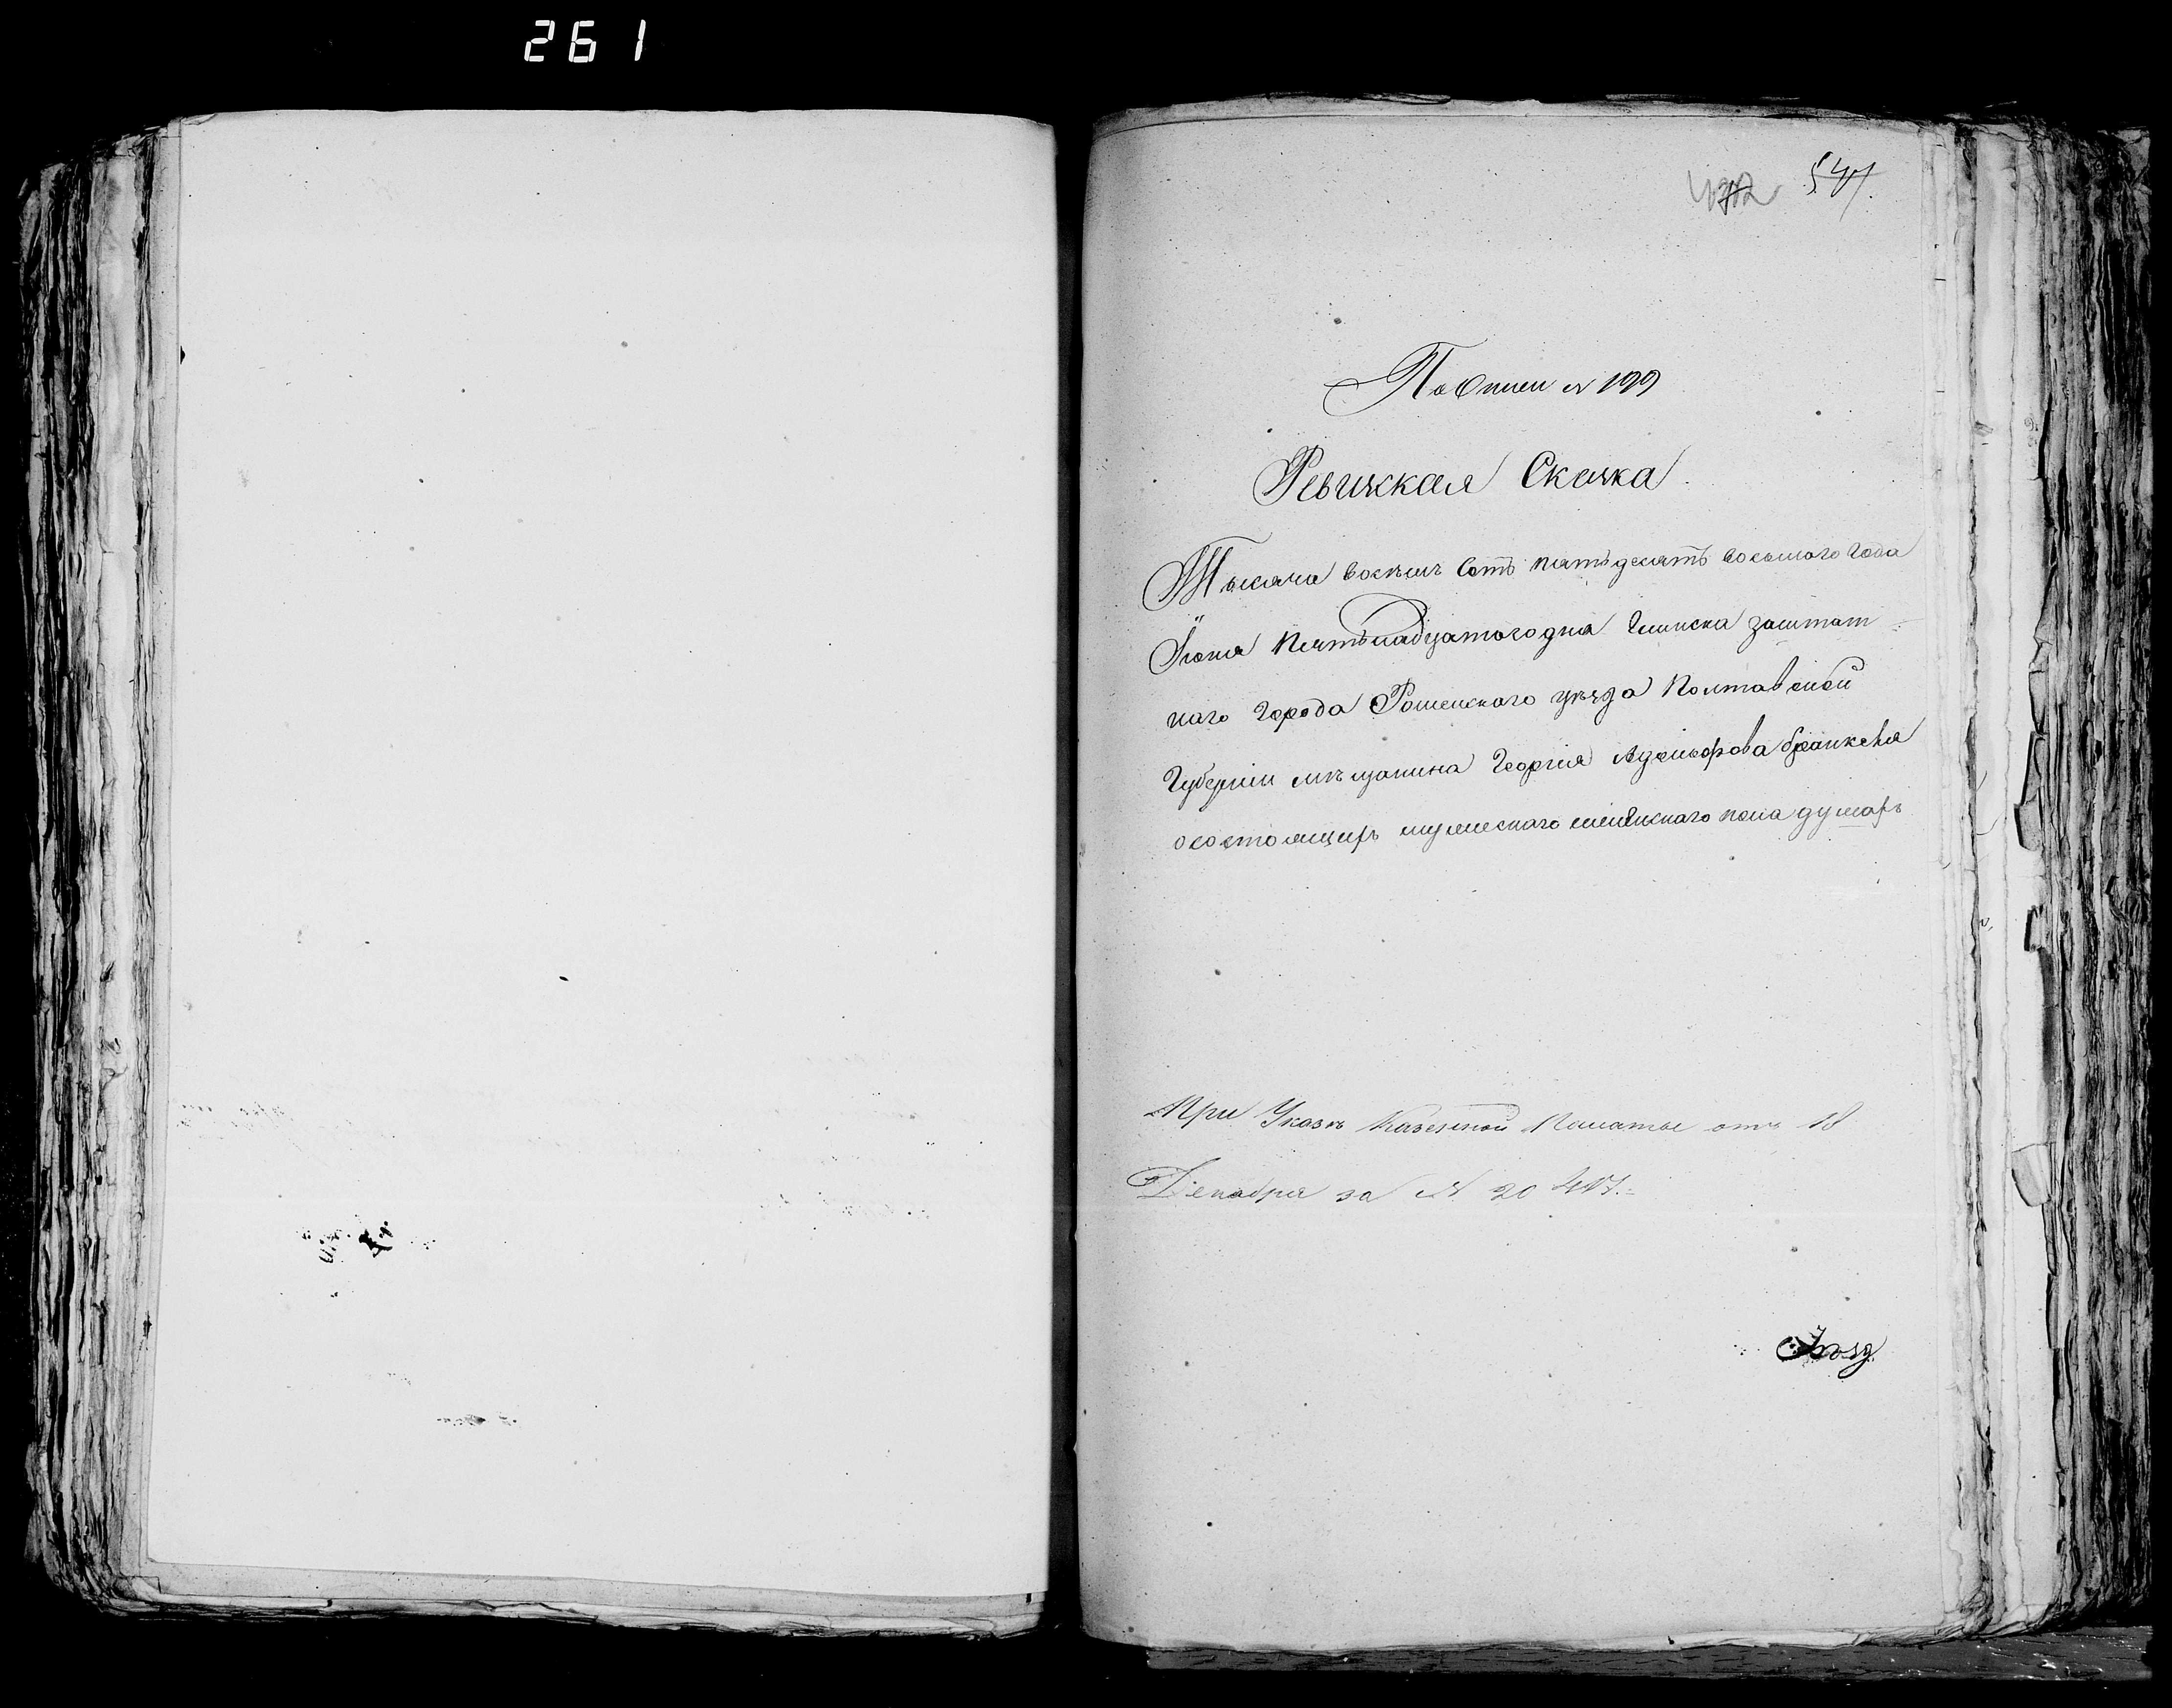 261
547.
По Описи № 199
Ревижская Скажка.
Тысяча восемь Сотъ пятьдесятъ восьмого года
Іюня Пятьнадцатого дня Глинска заштат-
наго Города Роменского уезда Полтавской
Губерніи мѣщанина Георгія Бранкевя
о состоящихъ мужескаго женскаго пола душахъ
При Указѣ Казенной Палаты отъ 18
Декабря за № 20417.